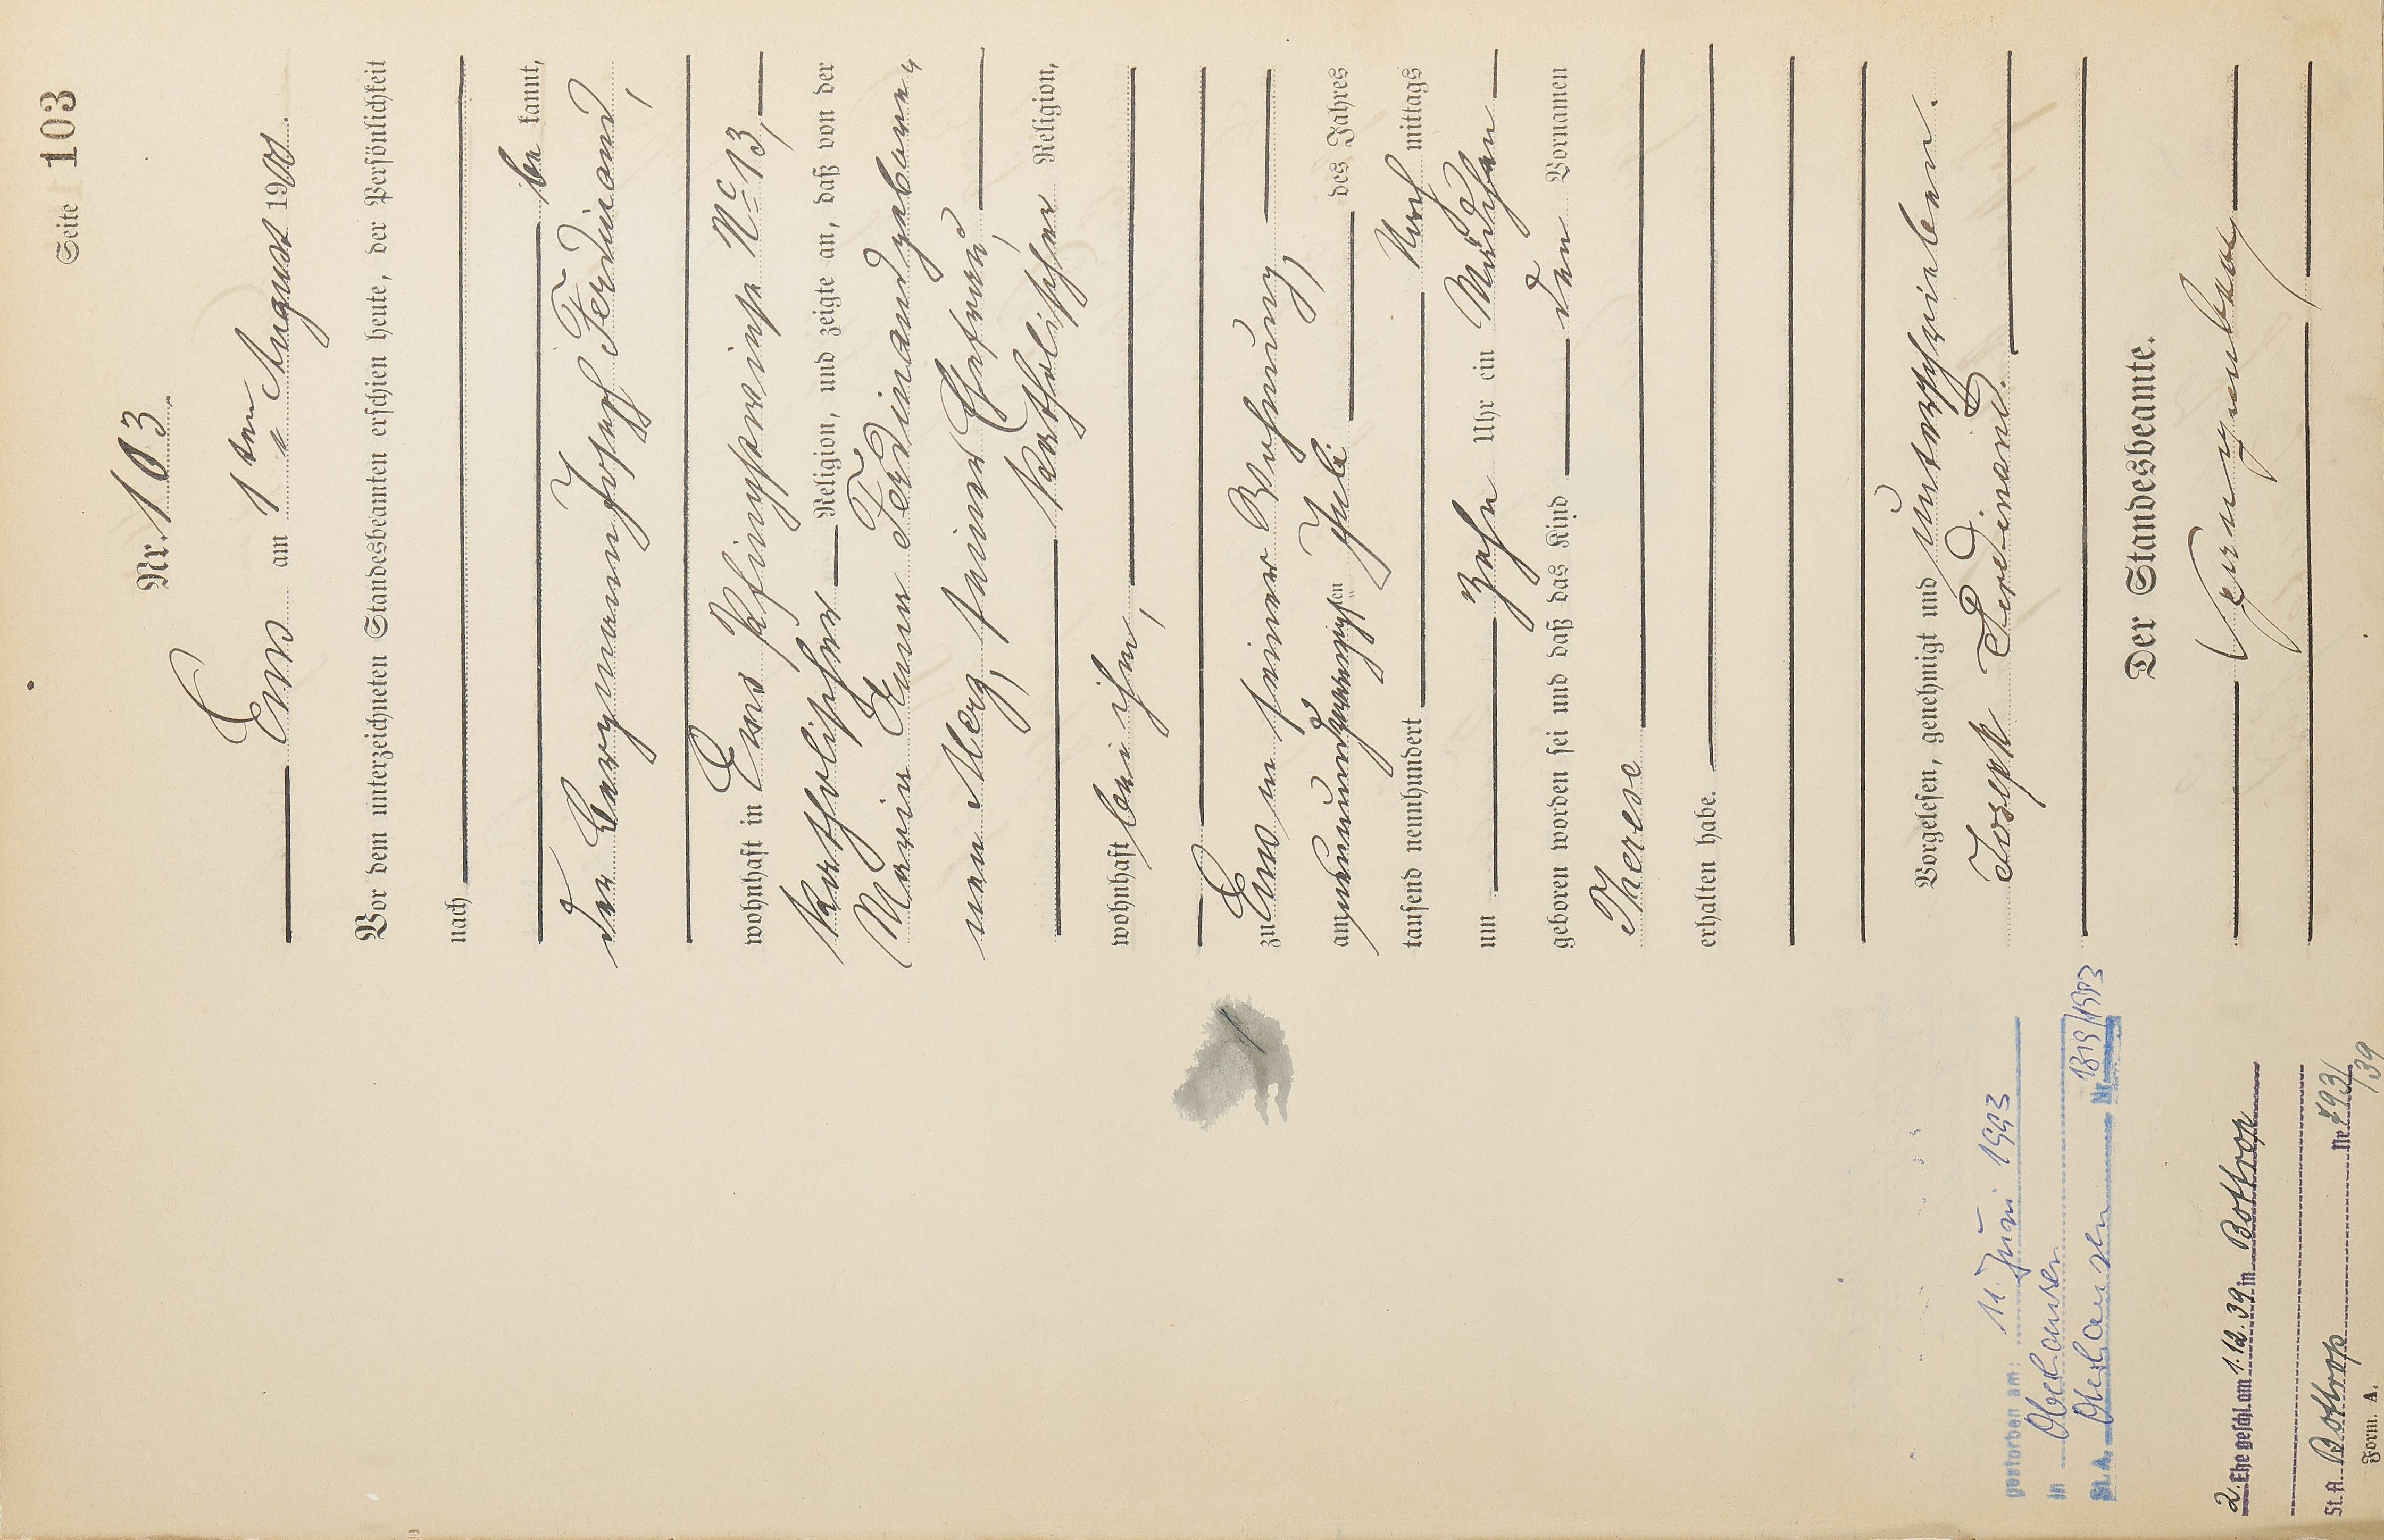 Seite 103
Nr. 103.
Ems am 1ten August 1900.
Vor dem unterzeichneten Standesbeamten erschien heute, der Persönlichkeit
nach
be kannt,
der Bergmann Joseph Ferdinand,
wohnhaft in Ems Pfingstwiese No 13,
katholischer Religion, und zeigte an, daß von der
Maria Anna Ferdinand gebore-
nen Merg, seiner Ehefrau,
katholischer Religion,
wohnhaft bei ihm,
zu Ems in seiner Wohnung,
am neunundzwanzigsten Juli des Jahres
tausend neunhundert Nach mittags
um zehn Uhr ein Mädchen
geboren worden sei und daß das Kind den Vornamen
Therese
erhalten habe.
Vorgelesen, genehmigt und unterschrieben.
Joseph Ferdinand.
Der Standesbeamte.
gestorben am: 11. Juni 1993
in Oberhausen
St.A. Oberhausen Nr. 1319/1993
2. Ehe geschl. am 1.12.39 in Bottrop
St.A. Bottrop Nr. 793/
/39
Form. A.